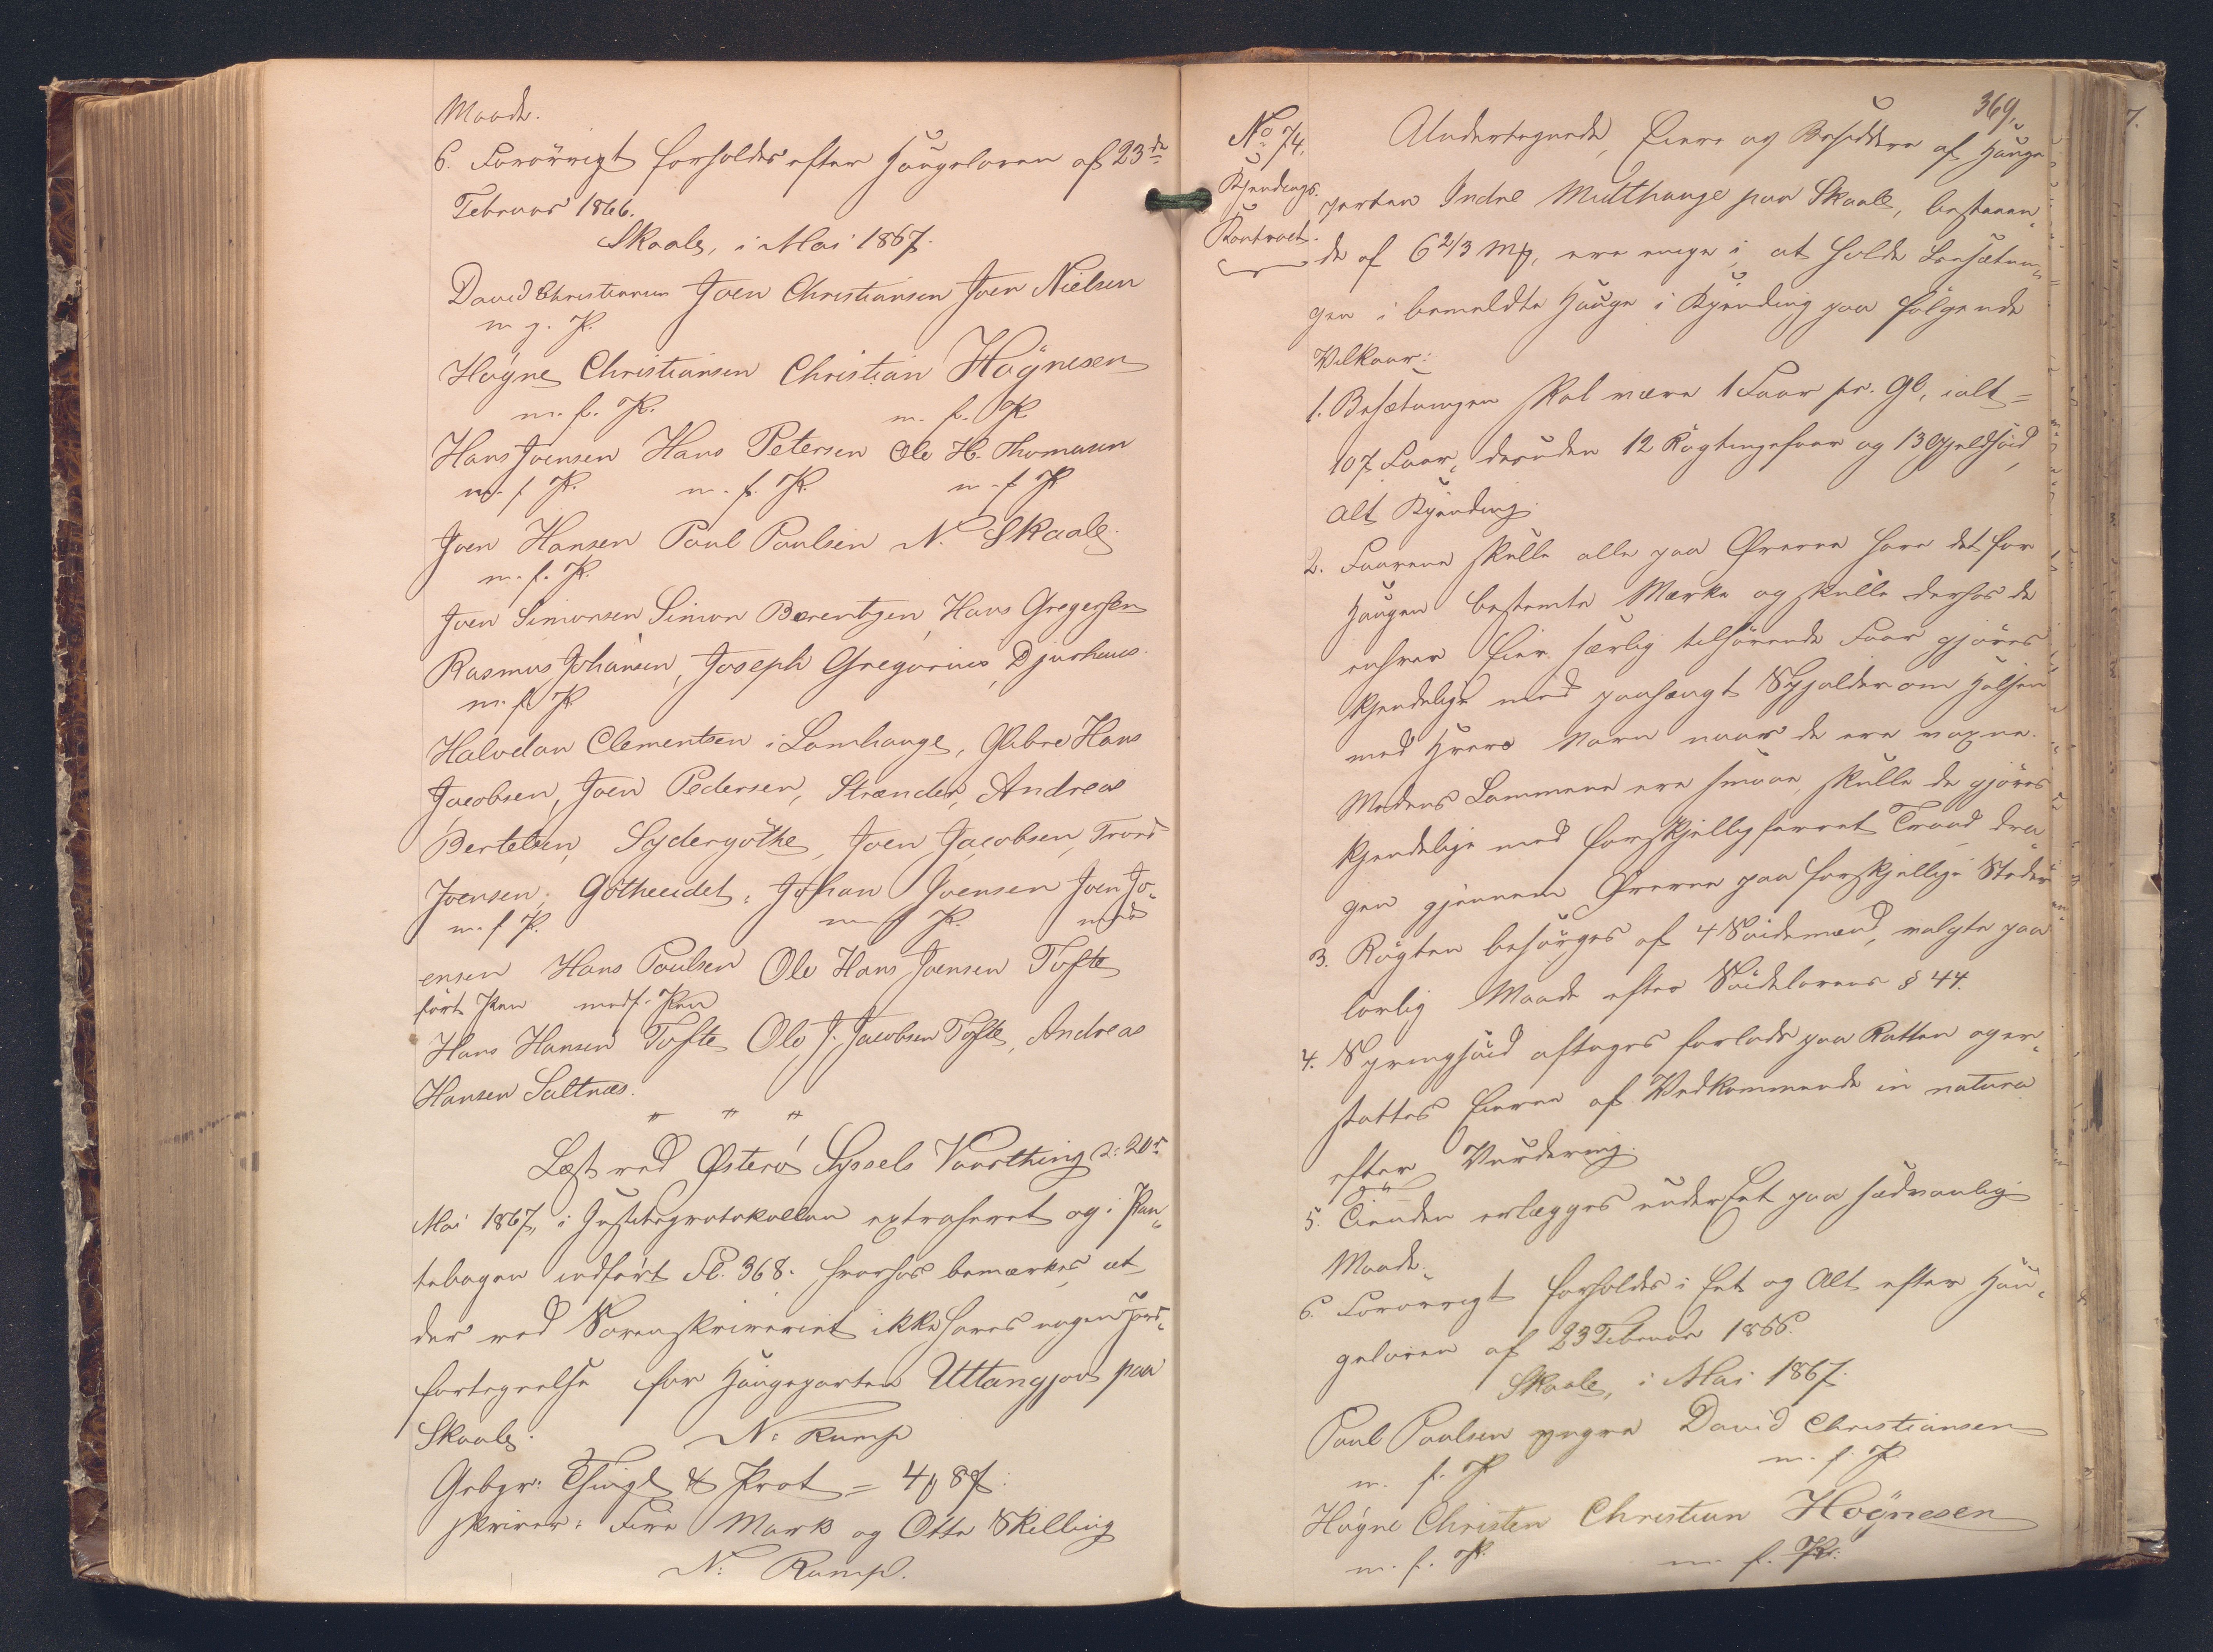 Maade.
6. Forøvrigt forholdes efter Haugeloven af 23de
Februar 1866.
Skaale, i Mai 1867.
David Christiansen Joen Christiansen Joen Nielsen
m. f. P.
Høgne Christiansen Christian Høgnesen
m. f. P. m. f. P.
Hans Joensen Hans Petersen Ole H. Thomasen
m. f. P. m. f. P. m. f. P.
Joen Hansen Poul Poulsen N. Skaale.
m. f. P.
Joen Simonsen Simon Barentzen, Hans Gregersen
Rasmus Johansen, Joseph Gregorius, Djurhuus.
m. f. P.
Halvdan Clementsen i Lamhauge, Glibre Hans
Jacobsen, Joen Pedersen, Strænder, Andreas
Bertelsen, Sydergøthe, Joen Jacobsen, Trond
Joensen, Gøtheeidet, Johan Joensen Joen Jo-
m. f. P. m. f. P. med
ensen Hans Poulsen Ole Hans Joensen Tofte
ført Pen medf. Pen
Hans Hansen Tofte Ole J. Jacobsen Tofte, Andreas
Hansen Saltnæs.
" " "
Læst ved Østerø Syssels Vaarthing d. 20de
Mai 1867, i Justitsprotokollen extraheret og i Pan-
tebogen indført Fol. 368. hvorhos bemærkes, at
der ved Sorenskriveriet ikke haves nogen Jord-
fortegnelse for Haugeparten Uttangjov paa
Skaale.
N. Rump
Gebyr: Thingl & Prot = 4 ₰ 8 ß.
skriver: Fire Mark og Otte Skilling
N. Rump.
369.
No 74.
Kjendings-
Kontract.
Undertegnede, Eiere og Besiddere af Hauge-
parten Indre Midthauge paa Skaale, bestaaen-
de af 6 2/3 Mk, ere enige i, at holde Besætnin-
gen i bemeldte Hauge i Kjending paa følgende
Vilkaar:
1. Besætningen skal være 1 Faar pr. Gl, ialt =
107 Faar, desuden 12 Røgtingefaar og 13 Gjeldsøid,
alt Kjending.
2. Faarene skulle alle paa Ørerne have det for
Haugen bestemte Mærke og skulle derhos de
enhver Eier særlig tilhørende Faar gjøres
kjendelige med paahængt Spjælder om Halsen
med Hvers Navn naar de ere voxne.
Medens Lammene ere smaae, skulle de gjøres
kjendelige med forskjelligfarvet Traad dra-
gen gjennem Ørerne paa forskjellige Steder
3. Røgten besørges af 4 Soidemænd, valgte paa
lovlig Maade efter Soidelovens § 44.
4. Springsøid aftages forlods paa Rætten og er-
stattes Eieren af Vedkommende in natura
efter Vurdering.
5. Tienden erlægges under Eet paa sædvanlig
Maade.
6. Forøvrigt forholdes i Eet og Alt efter Hau-
geloven af 23 Februar 1866.
Skaale, i Mai 1867.
Poul Poulsen yngre David Christiansen
m. f. P. m. f. P.
Høgne Christen Christian Høgnesen
m. f. P. m. f. P.